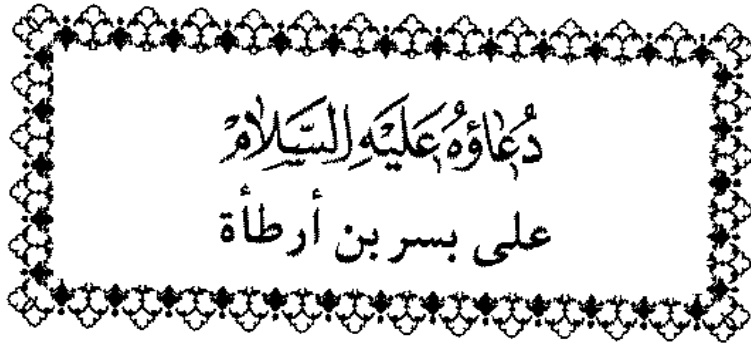 دُعَاؤُهُ عَلَيْهِ السَّلَامُ
على بسر بن أرطأة